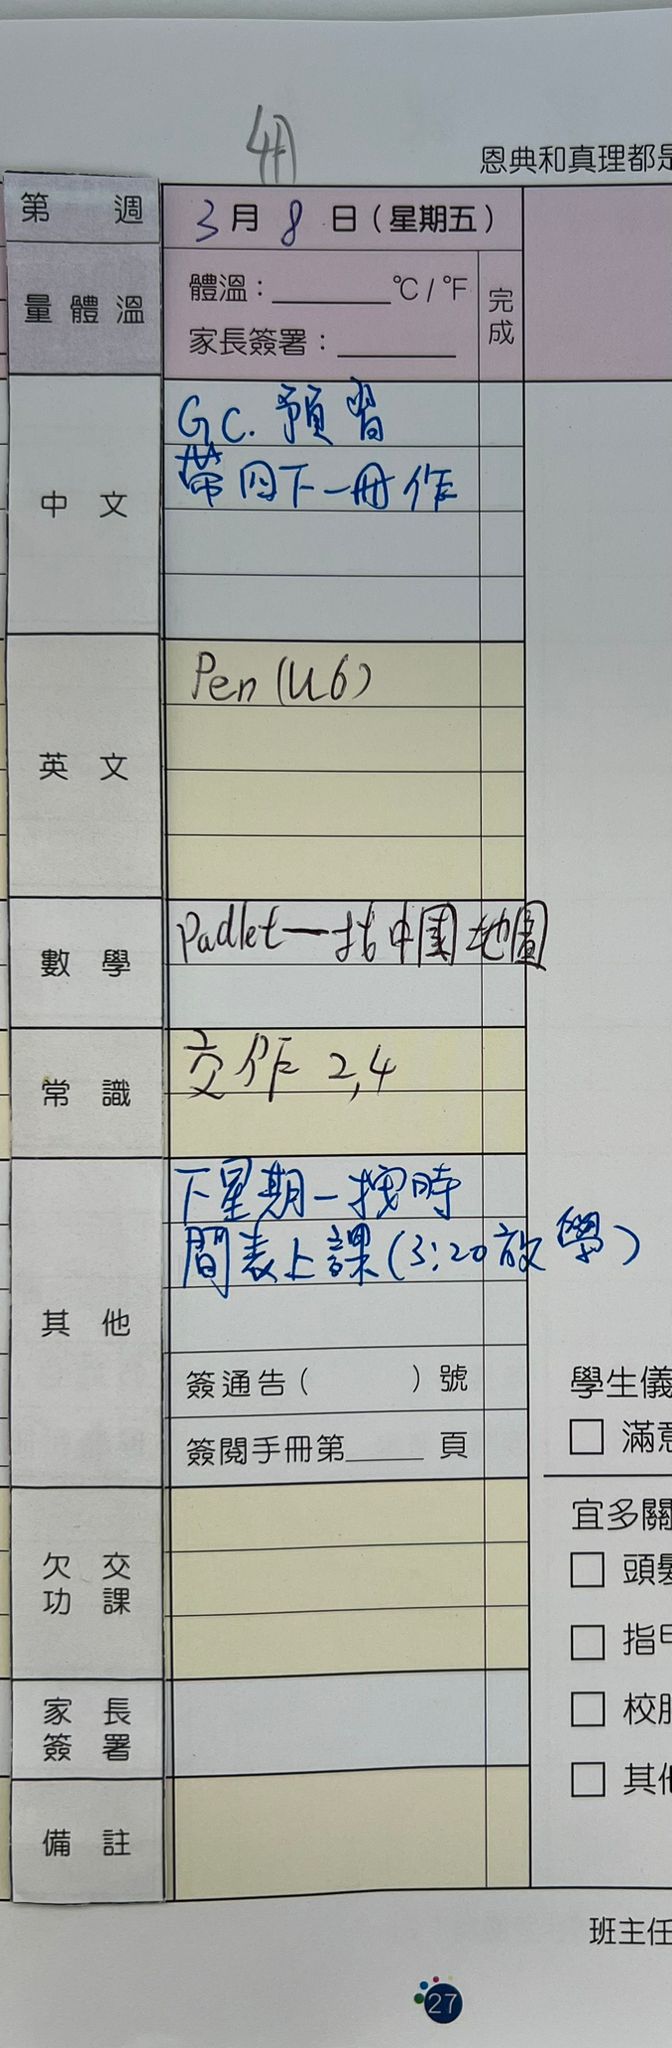 恩典和真理都是
第 週
3月8日(星期五)
量體溫
體溫:________℃/℉
完成
家長簽署:________
中文
G.C. 預習
帶四下一冊作
英文
Pen (U6)
數學
Padlet—找中國地圖
常識
交作 2,4
其他
下星期一按時
間表上課(3:20放學)
簽通告( )號
簽閱手冊第_____頁
學生儀
□ 滿意
宜多關
□ 頭髮
□ 指甲
□ 校服
□ 其他
欠交
功課
家長
簽署
備註
班主任
27